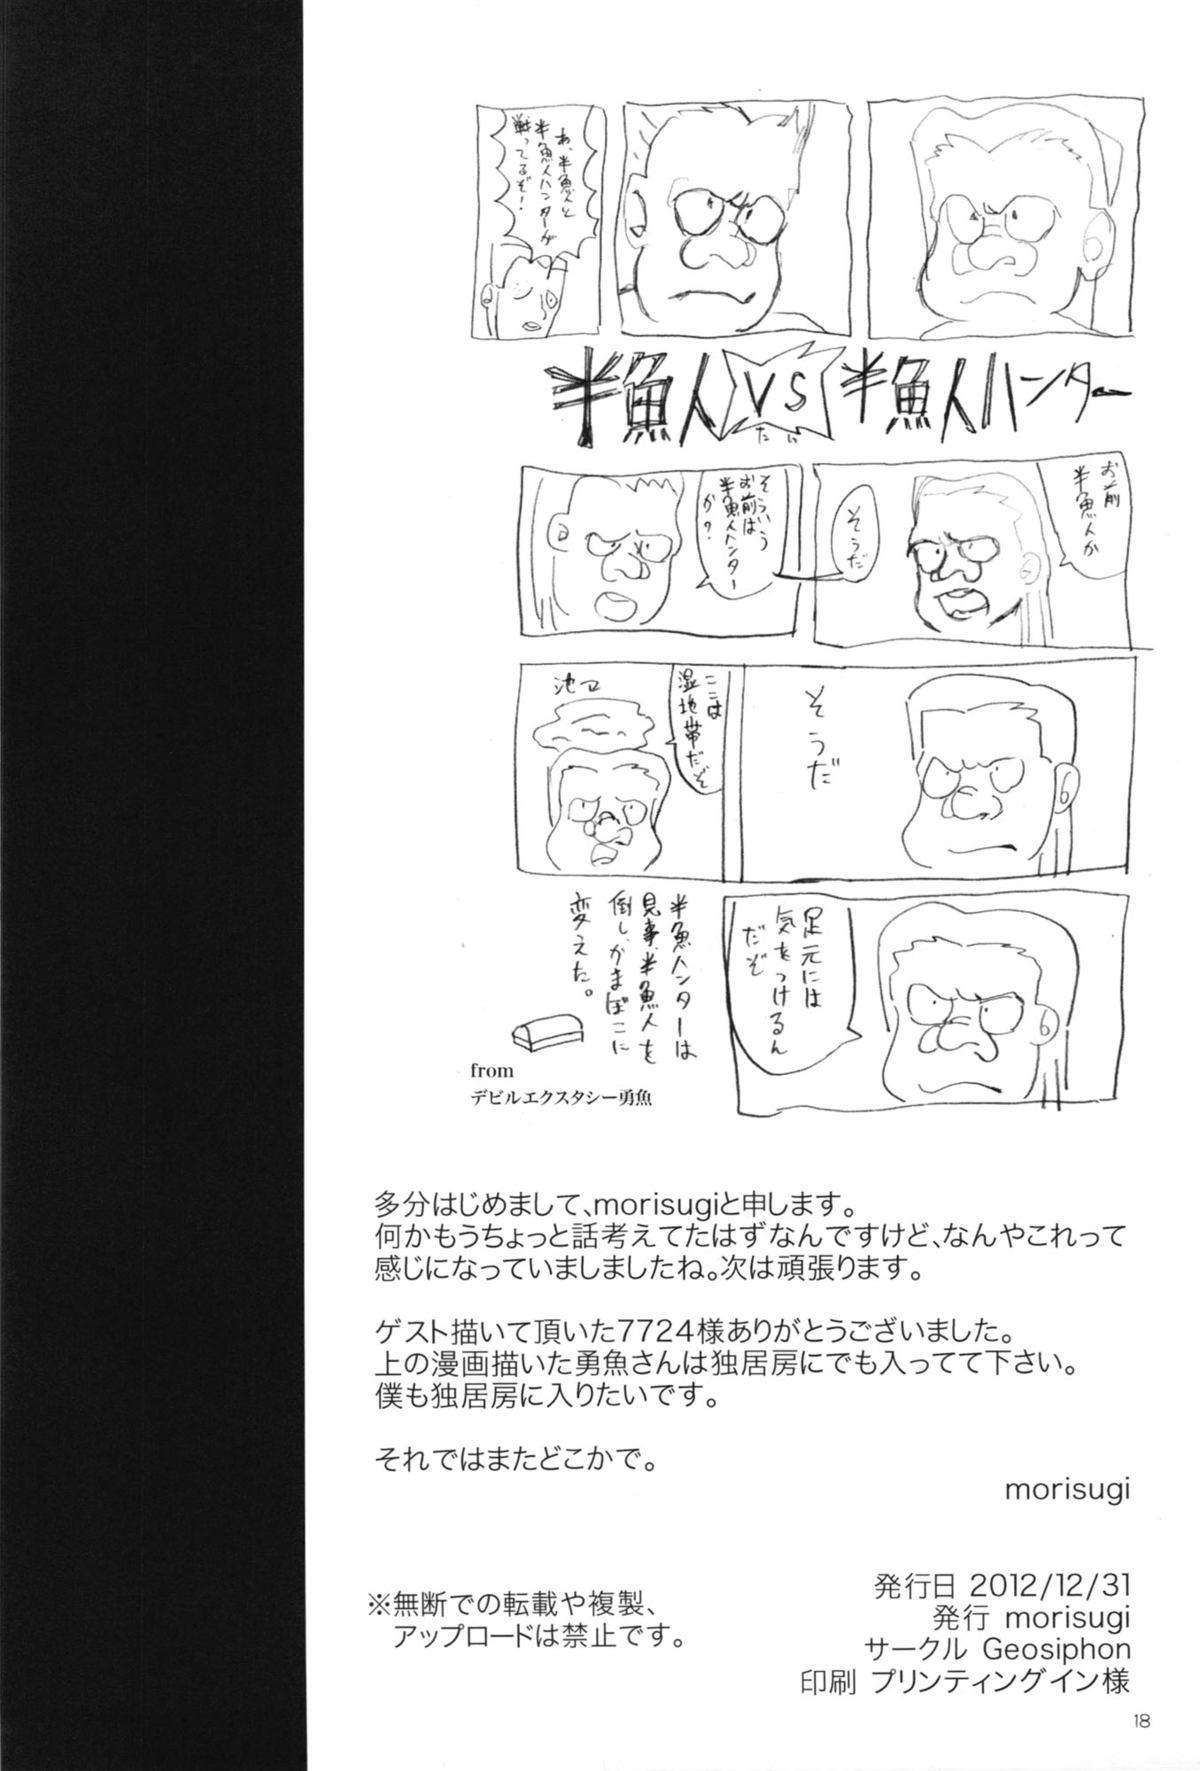 あ、半魚人と
半魚人ハンターが
戦ってるぞ!
半魚人VS半魚人ハンター
たい
お前
半魚人か
そうだ
そういう
お前は
半魚人ハンター
か?
そうだ
ここは
湿地帯だぞ
池
足元には
気をつけるん
だぞ
半魚ハンターは
見事、半魚人を
倒し、かまぼこに
変えた。
from
デビルエクスタシー勇魚
多分はじめまして、morisugiと申します。
何かもうちょっと話考えてたはずなんですけど、なんやこれって
感じになっていましましたね。次は頑張ります。
ゲスト描いて頂いた7724様ありがとうございました。
上の漫画描いた勇魚さんは独居房にでも入ってて下さい。
僕も独居房に入りたいです。
それではまたどこかで。
morisugi
※無断での転載や複製、
アップロードは禁止です。
発行日 2012/12/31
発行 morisugi
サークル Geosiphon
印刷 プリンティングイン様
18